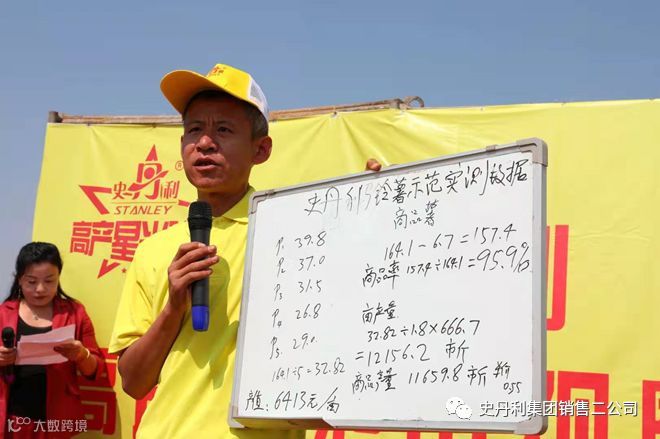 史丹利
®
STANLEY
高产星
史丹利马铃薯示范实测数据
商品薯
P1 39.8
164.1-6.7=157.4
P2 37.0
商品率 157.4÷164.1=95.9%
P3 31.5
P4 26.8
亩产量
P5 29.0
32.82÷1.8×666.7
164.1÷5=32.82
=12156.2 市斤
商品量 11659.8 市斤
0.55
产值: 6413元/亩
大数跨境
史丹利集团销售二公司